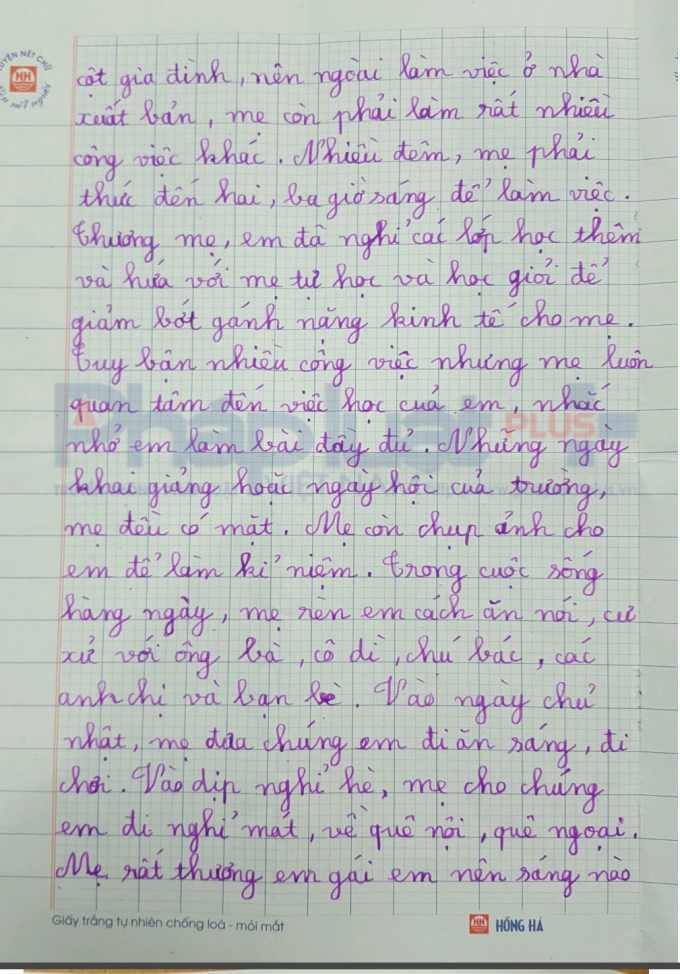 HH
cột gia đình, nên ngoài làm việc ở nhà
xuất bản, mẹ còn phải làm rất nhiều
công việc khác. Nhiều đêm, mẹ phải
thức đến hai, ba giờ sáng để làm việc.
Thương mẹ, em đã nghỉ các lớp học thêm
và hứa với mẹ tự học và học giỏi để
giảm bớt gánh nặng kinh tế cho mẹ.
Tuy bận nhiều công việc nhưng mẹ luôn
quan tâm đến việc học của em, nhắc
nhở em làm bài đầy đủ. Những ngày
khai giảng hoặc ngày hội của trường,
mẹ đều có mặt. Mẹ còn chụp ảnh cho
em để làm kỉ niệm. Trong cuộc sống
hàng ngày, mẹ rèn em cách ăn nói, cư
xử với ông bà, cô dì, chú bác, các
anh chị và bạn bè. Vào ngày chủ
nhật, mẹ đưa chúng em đi ăn sáng, đi
chơi. Vào dịp nghỉ hè, mẹ cho chúng
em đi nghỉ mát, về quê nội, quê ngoại.
Mẹ rất thương em gái em nên sáng nào
Giấy trắng tự nhiên chống loá - mỏi mắt
HH HỒNG HÀ
Pháp luật PLUS